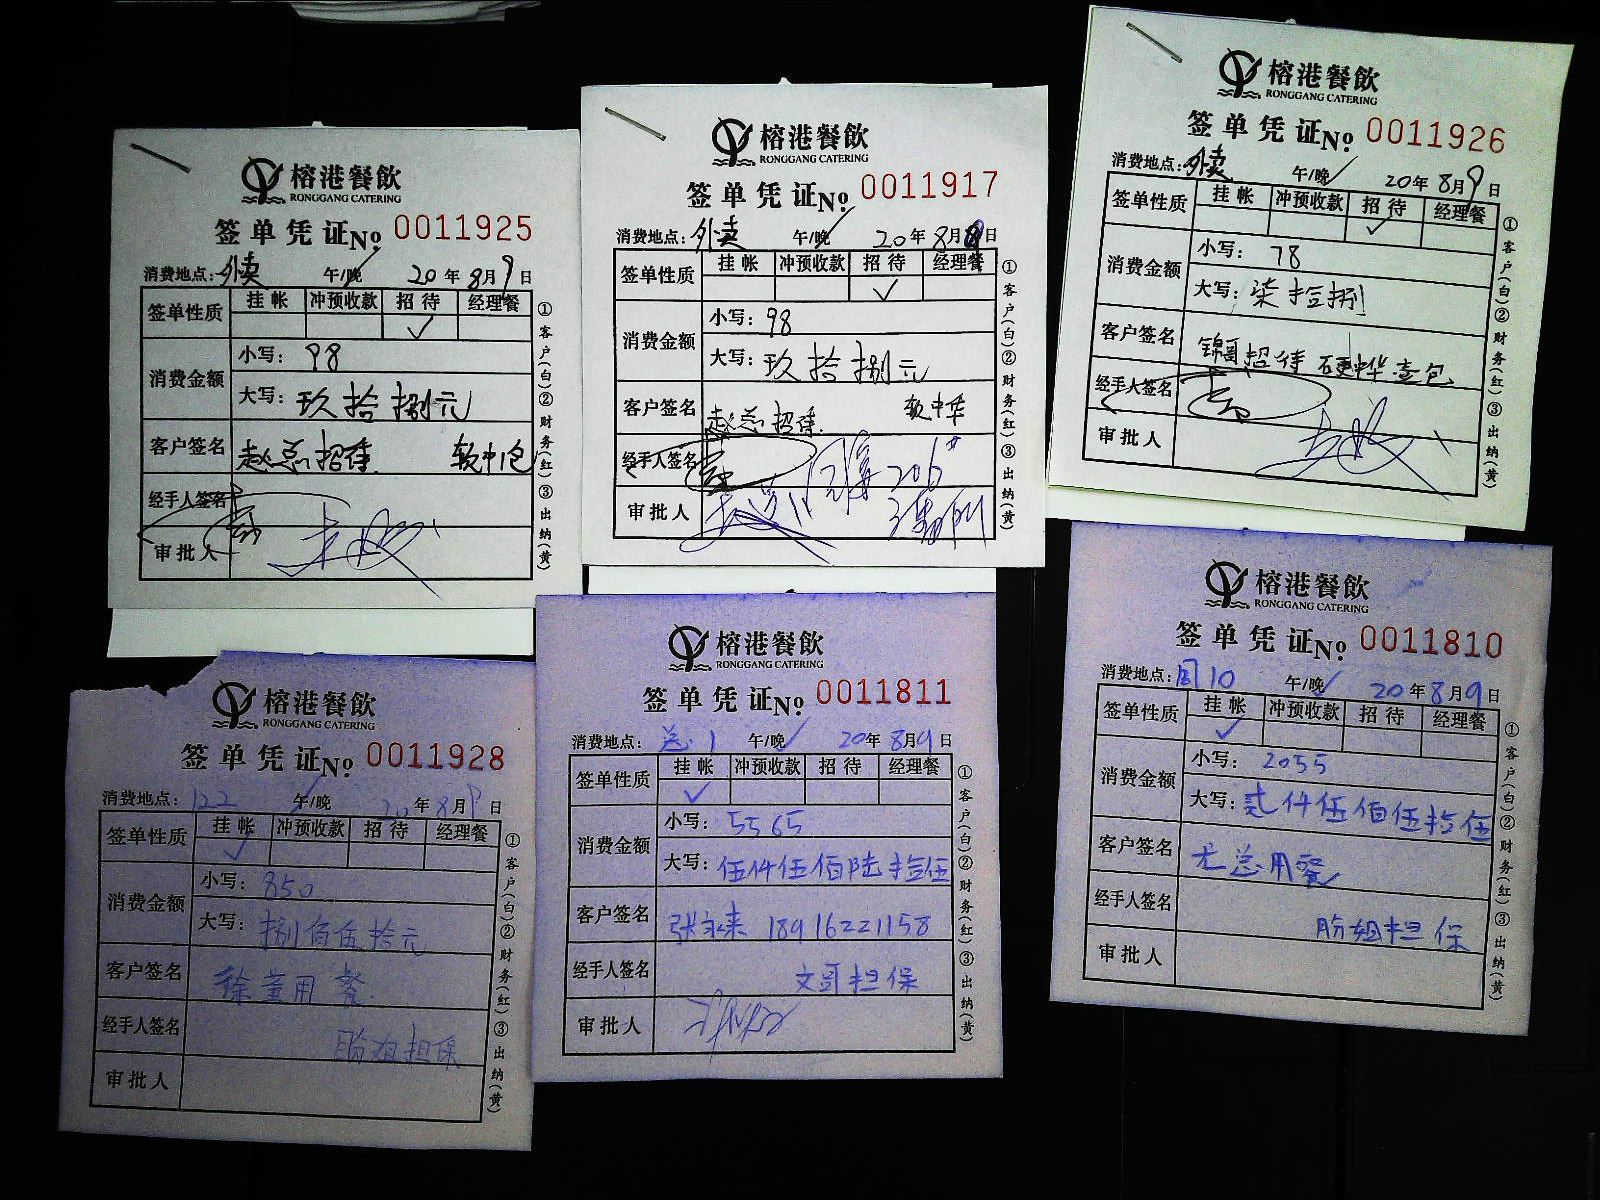 榕港餐飲
RONGGANG CATERING
签单凭证No 0011925
消费地点:外卖 午/晚 20年8月9日
签单性质 挂帐 冲预收款 招待 经理餐
✓
消费金额 小写: 98
大写: 玖拾捌元
客户签名 赵总招待 软中1包
经手人签名
审批人
①客户(白)②财务(红)③出纳(黄)
榕港餐飲
RONGGANG CATERING
签单凭证No 0011917
消费地点:外卖 午/晚 20年8月日
签单性质 挂帐 冲预收款 招待 经理餐
✓
消费金额 小写: 98
大写: 玖拾捌元
客户签名 赵总招待 软中华
经手人签名 206
审批人
①客户(白)②财务(红)③出纳(黄)
榕港餐飲
RONGGANG CATERING
签单凭证No 0011926
消费地点:外卖 午/晚 20年8月9日
签单性质 挂帐 冲预收款 招待 经理餐
✓
消费金额 小写: 78
大写: 柒拾捌
客户签名 锦哥招待 硬中华壹包
经手人签名
审批人
①客户(白)②财务(红)③出纳(黄)
榕港餐飲
RONGGANG CATERING
签单凭证No 0011928
消费地点: 122 午/晚 20年8月9日
签单性质 挂帐 冲预收款 招待 经理餐
✓
消费金额 小写: 850
大写: 捌佰伍拾元
客户签名 徐董用餐
经手人签名 担保
审批人
①客户(白)②财务(红)③出纳(黄)
榕港餐飲
RONGGANG CATERING
签单凭证No 0011811
消费地点: 总1 午/晚 20年8月9日
签单性质 挂帐 冲预收款 招待 经理餐
✓
消费金额 小写: 5565
大写: 伍仟伍佰陆拾伍
客户签名 张永来 18916221158
经手人签名 文哥担保
审批人
①客户(白)②财务(红)③出纳(黄)
榕港餐飲
RONGGANG CATERING
签单凭证No 0011810
消费地点: 国10 午/晚 20年8月9日
签单性质 挂帐 冲预收款 招待 经理餐
✓
消费金额 小写: 2055
大写: 贰仟伍佰伍拾伍
客户签名 尤总用餐
经手人签名 姐担保
审批人
①客户(白)②财务(红)③出纳(黄)